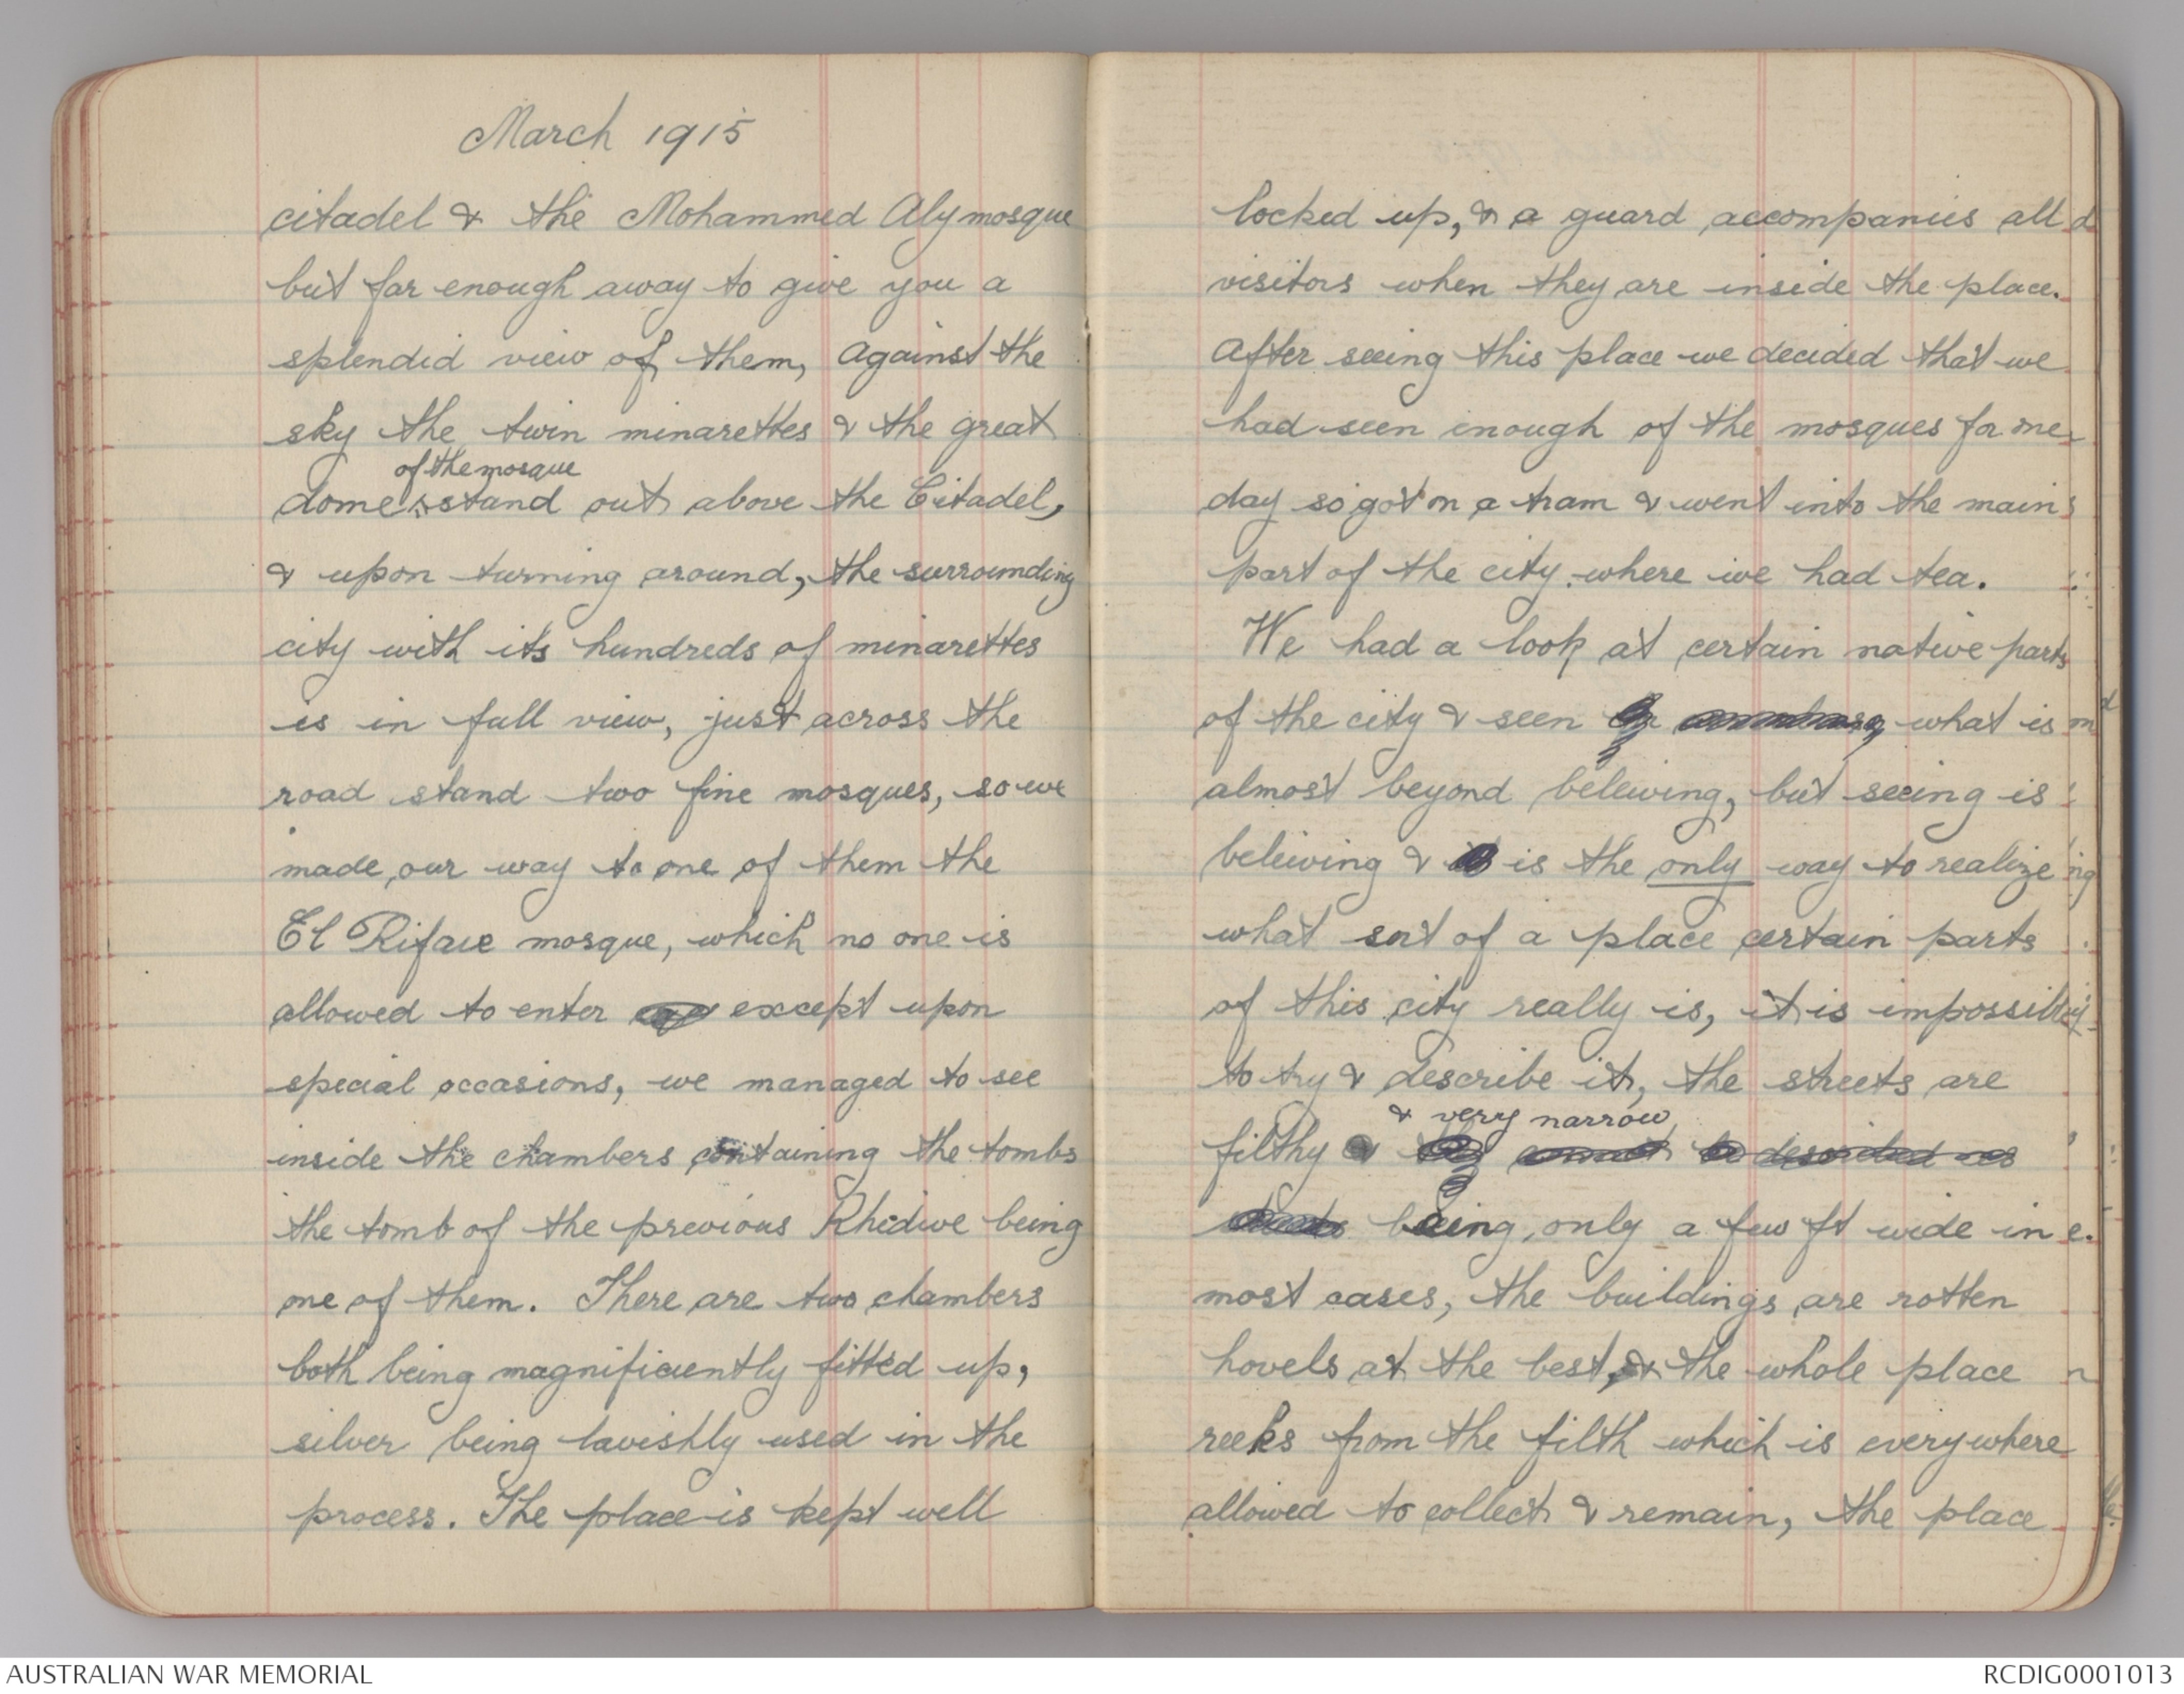 March 1915
citadel & the Mohammed Aly mosque
but far enough away to give you a
splendid view of them, Against the
sky the twin minarettes & the great
of the mosque
dome stand out above the Citadel,
& upon turning around, the surrounding
city with its hundreds of minarettes
is in full view, just across the
road stand two fine mosques, so we
made our way to one of them the
El Rifaie mosque, which no one is
allowed to enter except upon
special occasions, we managed to see
inside the chambers containing the tombs
the tomb of the previous Khedive being
one of them. There are two chambers
both being magnificiently fitted up,
silver being lavishly used in the
process. The place is kept well
locked up, & a guard accompanies all
visitors when they are inside the place.
After seeing this place we decided that we
had seen enough of the mosques for one
day so got on a tram & went into the main
part of the city where we had tea.
We had a look at certain native parts
of the city & seen what is
almost beyond beleiving, but seeing is
beleiving & is the only way to realize
what sort of a place certain parts
of this city really is, it is impossible
to try & describe it, the streets are
& very narrow
filthy
being only a few ft wide in
most cases, the buildings are rotten
hovels at the best, & the whole place
reeks from the filth which is everywhere
allowed to collect & remain, the place
AUSTRALIAN WAR MEMORIAL
RCDIG0001013